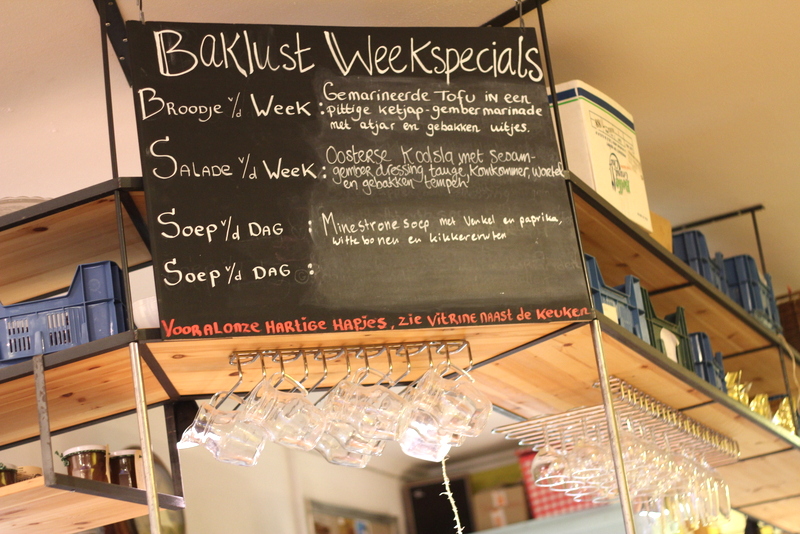 Baklust Weekspecials
Broodje v/d Week : Gemarineerde Tofu in een
pittige ketjap-gember marinade
met atjar en gebakken uitjes.
Salade v/d Week : Oosterse Koolsla met sesam-
gember dressing, tauge, komkommer, wortel
en gebakken tempeh
Soep v/d Dag : Minestrone soep met Venkel en paprika,
witte bonen en kikkererwten
Soep v/d Dag :
Voor al onze hartige hapjes, zie vitrine naast de keuken